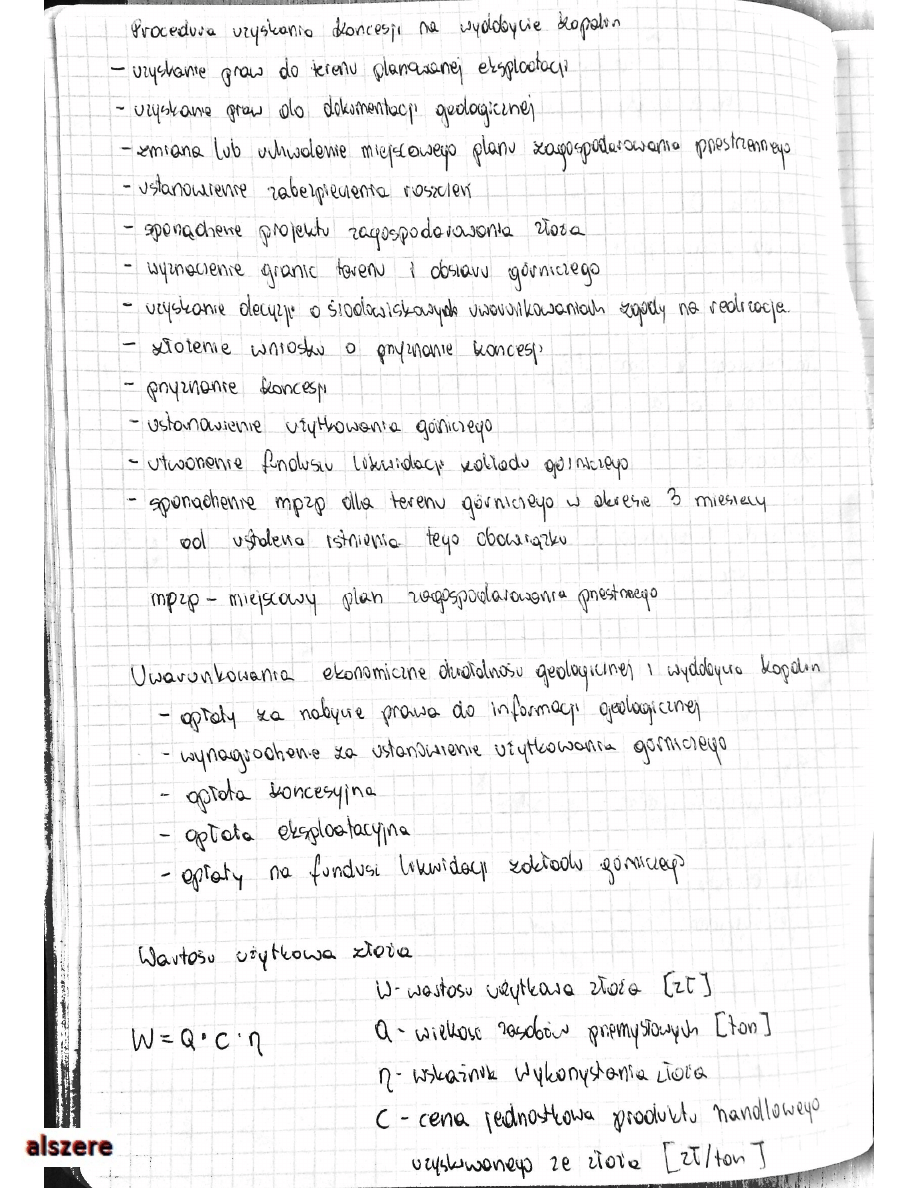 Procedura uzyskania koncesji na wydobycie kopalin
- uzyskanie praw do terenu planowanej eksploatacji
- uzyskanie praw do dokumentacji geologicznej
- zmiana lub uchwalenie miejscowego planu zagospodarowania przestrzennego
- ustanowienie zabezpieczenia roszczeń
- sporządzenie projektu zagospodarowania złoża
- wyznaczenie granic terenu i obszaru górniczego
- uzyskanie decyzji o środowiskowych uwarunkowaniach zgody na realizację.
- złożenie wniosku o przyznanie koncesji
- przyznanie koncesji
- ustanowienie użytkowania górniczego
- utworzenie funduszu likwidacji zakładu górniczego
- sporządzenie mpzp dla terenu górniczego w okresie 3 miesięcy
od ustalenia istnienia tego obowiązku
mpzp - miejscowy plan zagospodarowania przestrzennego
Uwarunkowania ekonomiczne działalności geologicznej i wydobycia kopalin
- opłaty za nabycie prawa do informacji geologicznej
- wynagrodzenie za ustanowienie użytkowania górniczego
- opłata koncesyjna
- opłata eksploatacyjna
- opłaty na fundusz likwidacji zakładu górniczego
Wartość użytkowa złoża
W - wartość użytkowa złoża [zł]
W = Q · C · η
Q - wielkość zasobów przemysłowych [ton]
η - wskaźnik wykorzystania złoża
C - cena jednostkowa produktu handlowego
uzyskiwanego ze złoża [zł/ton]
alszere